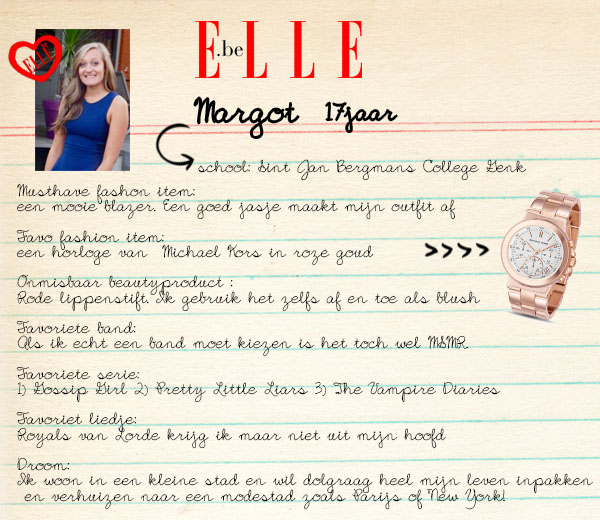 ELLE
ELLE.be
Margot 17jaar
school: Sint Jan Bergmans College Genk
Musthave fashon item:
een mooie blazer. Een goed jasje maakt mijn outfit af
Favo fashion item:
een horloge van Michael Kors in roze goud
>>>>
Onmisbaar beautyproduct :
Rode lippenstift. Ik gebruik het zelfs af en toe als blush
Favoriete band:
Als ik echt een band moet kiezen is het toch wel MSMR
Favoriete serie:
1) Gossip Girl 2) Pretty Little Liars 3) The Vampire Diaries
Favoriet liedje:
Royals van Lorde krijg ik maar niet uit mijn hoofd
Droom:
Ik woon in een kleine stad en wil dolgraag heel mijn leven inpakken
en verhuizen naar een modestad zoals Parijs of New York!